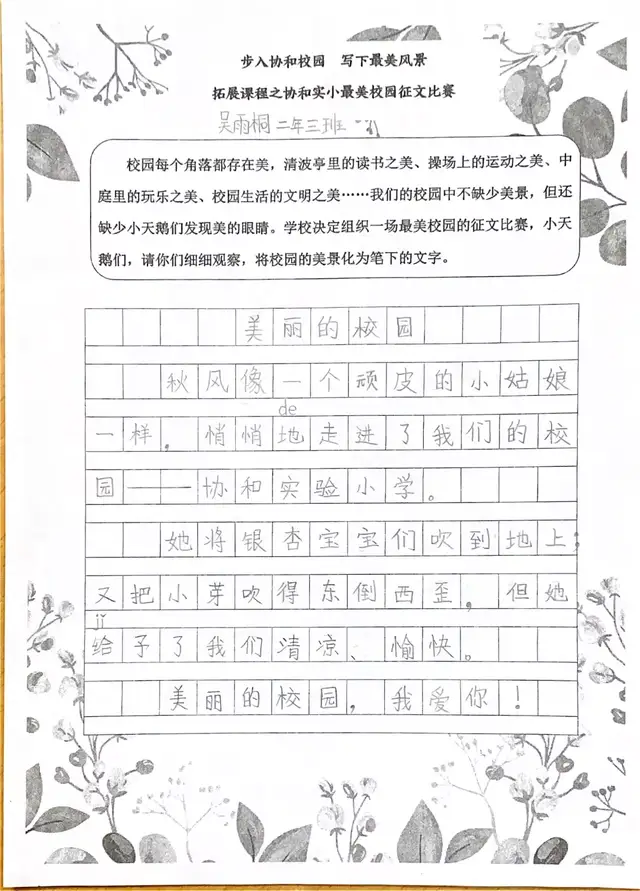 步入协和校园 写下最美风景
拓展课程之协和实小最美校园征文比赛
吴雨桐 二年三班
校园每个角落都存在美，清波亭里的读书之美、操场上的运动之美、中
庭里的玩乐之美、校园生活的文明之美……我们的校园中不缺少美景，但还
缺少小天鹅们发现美的眼睛。学校决定组织一场最美校园的征文比赛，小天
鹅们，请你们细细观察，将校园的美景化为笔下的文字。
美丽的校园
秋风像一个顽皮的小姑娘
de
一样，悄悄地走进了我们的校
园——协和实验小学。
她将银杏宝宝们吹到地上；
又把小芽吹得东倒西歪，但她
jǐ
给予了我们清凉、愉快。
美丽的校园，我爱你！